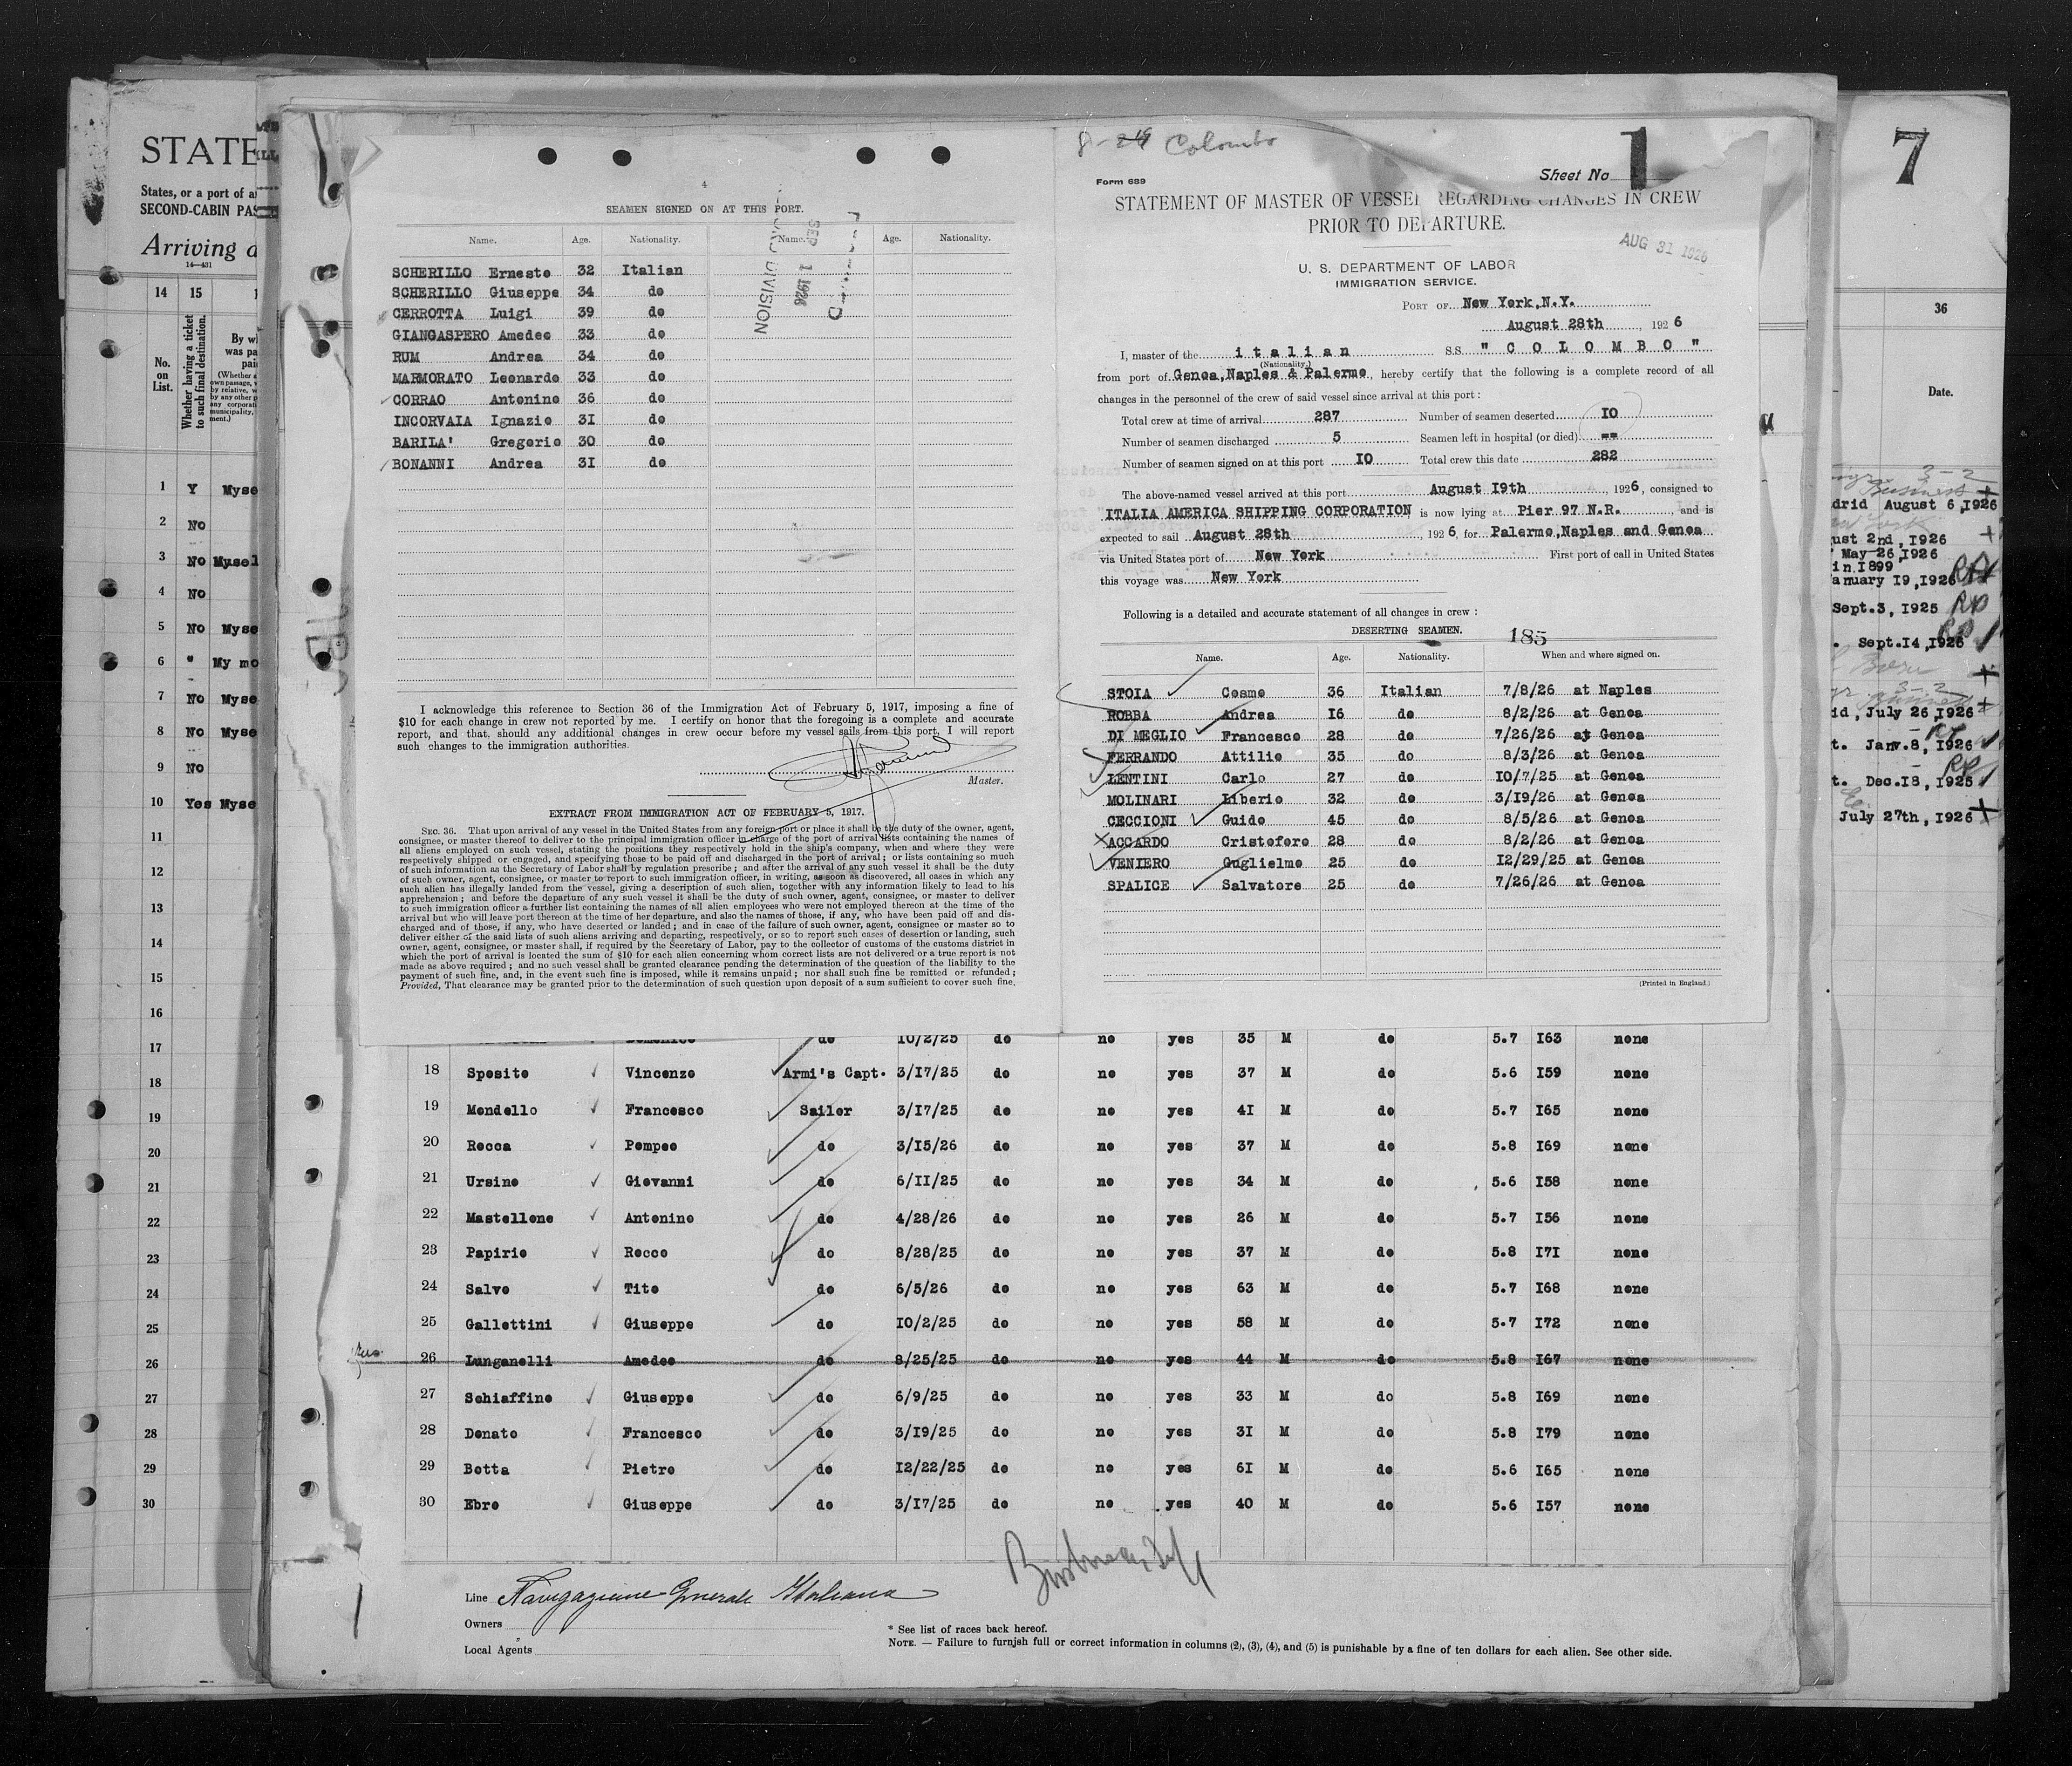 STATE
States, or a port of a
SECOND-CABIN PAS
Arriving a
14—431
14 15
No. on List.
Whether having a ticket to such final destination.
By wh
was pa
(Whether a
own passage, w
by relative, w
by any other p
any corporat
municipality,
ment.)
1 Y Myse
2 No
3 No Mysel
4 No
5 No Myse
6 " My mo
7 No Myse
8 No Myse
9 No
10 Yes Myse
11
12
13
14
15
16
17
18
19
20
21
22
23
24
25
26
27
28
29
30
4
SEAMEN SIGNED ON AT THIS PORT.
Name. Age. Nationality. Name. Age. Nationality.
SEP 1 1926
DIVISION
SCHERILLO Ernesto 32 Italian
SCHERILLO Giuseppe 34 do
CERROTTA Luigi 39 do
GIANGASPERO Amedeo 33 do
RUM Andrea 34 do
MARMORATO Leonardo 33 do
CORRAO Antonino 36 do
INCORVAIA Ignazio 31 do
BARILA' Gregorio 30 do
BONANNI Andrea 31 do
I acknowledge this reference to Section 36 of the Immigration Act of February 5, 1917, imposing a fine of
$10 for each change in crew not reported by me. I certify on honor that the foregoing is a complete and accurate
report, and that, should any additional changes in crew occur before my vessel sails from this port, I will report
such changes to the immigration authorities.
Master.
EXTRACT FROM IMMIGRATION ACT OF FEBRUARY 5, 1917.
SEC. 36. That upon arrival of any vessel in the United States from any foreign port or place it shall be the duty of the owner, agent,
consignee, or master thereof to deliver to the principal immigration officer in charge of the port of arrival lists containing the names of
all aliens employed on such vessel, stating the positions they respectively hold in the ship's company, when and where they were
respectively shipped or engaged, and specifying those to be paid off and discharged in the port of arrival; or lists containing so much
of such information as the Secretary of Labor shall by regulation prescribe; and after the arrival of any such vessel it shall be the duty
of such owner, agent, consignee, or master to report to such immigration officer, in writing, as soon as discovered, all cases in which any
such alien has illegally landed from the vessel, giving a description of such alien, together with any information likely to lead to his
apprehension; and before the departure of any such vessel it shall be the duty of such owner, agent, consignee, or master to deliver
to such immigration officer a further list containing the names of all alien employees who were not employed thereon at the time of the
arrival but who will leave port thereon at the time of her departure, and also the names of those, if any, who have been paid off and dis-
charged and of those, if any, who have deserted or landed; and in case of the failure of such owner, agent, consignee or master so to
deliver either of the said lists of such aliens arriving and departing, respectively, or so to report such cases of desertion or landing, such
owner, agent, consignee, or master shall, if required by the Secretary of Labor, pay to the collector of customs of the customs district in
which the port of arrival is located the sum of $10 for each alien concerning whom correct lists are not delivered or a true report is not
made as above required; and no such vessel shall be granted clearance pending the determination of the question of the liability to the
payment of such fine, and, in the event such fine is imposed, while it remains unpaid; nor shall such fine be remitted or refunded;
Provided, That clearance may be granted prior to the determination of such question upon deposit of a sum sufficient to cover such fine.
Colombo
Form 689
Sheet No 1
STATEMENT OF MASTER OF VESSEL REGARDING CHANGES IN CREW
PRIOR TO DEPARTURE.
AUG 31 1926
U. S. DEPARTMENT OF LABOR
IMMIGRATION SERVICE.
PORT OF New York, N.Y.
August 28th, 1926
I, master of the italian S.S. "COLOMBO"
(Nationality.)
from port of Genoa, Naples & Palermo, hereby certify that the following is a complete record of all
changes in the personnel of the crew of said vessel since arrival at this port:
Total crew at time of arrival 287 Number of seamen deserted 10
Number of seamen discharged 5 Seamen left in hospital (or died) --
Number of seamen signed on at this port 10 Total crew this date 282
The above-named vessel arrived at this port August 19th, 1926, consigned to
ITALIA AMERICA SHIPPING CORPORATION is now lying at Pier 97 N.R., and is
expected to sail August 28th, 1926, for Palermo, Naples and Genoa
via United States port of New York First port of call in United States
this voyage was New York
Following is a detailed and accurate statement of all changes in crew:
DESERTING SEAMEN. 185
Name. Age. Nationality. When and where signed on.
STOIA Cosmo 36 Italian 7/8/26 at Naples
ROBBA Andrea 16 do 8/2/26 at Genoa
DI MEGLIO Francesco 28 do 7/26/26 at Genoa
FERRANDO Attilio 35 do 8/3/26 at Genoa
LENTINI Carlo 27 do 10/7/25 at Genoa
MOLINARI Liberio 32 do 3/19/26 at Genoa
CECCIONI Guido 45 do 8/5/26 at Genoa
ACCARDO Cristoforo 28 do 8/2/26 at Genoa
VENIERO Guglielmo 25 do 12/29/25 at Genoa
SPALICE Salvatore 25 do 7/26/26 at Genoa
(Printed in England.)
Domenico do 10/2/25 do no yes 35 M do 5.7 163 none
18 Sposito Vincenzo Armi's Capt. 3/17/25 do no yes 37 M do 5.6 159 none
19 Mondello Francesco Sailor 3/17/25 do no yes 41 M do 5.7 165 none
20 Rocca Pompeo do 3/15/26 do no yes 37 M do 5.8 169 none
21 Ursino Giovanni do 6/11/25 do no yes 34 M do 5.6 158 none
22 Mastellone Antonino do 4/28/26 do no yes 26 M do 5.7 156 none
23 Papirio Rocco do 8/28/25 do no yes 37 M do 5.8 171 none
24 Salvo Tito do 6/5/26 do no yes 63 M do 5.7 168 none
25 Gallettini Giuseppe do 10/2/25 do no yes 58 M do 5.7 172 none
26 Lunganelli Amedeo do 8/25/25 do no yes 44 M do 5.8 167 none
27 Schiaffino Giuseppe do 6/9/25 do no yes 33 M do 5.8 169 none
28 Donato Francesco do 3/19/25 do no yes 31 M do 5.8 179 none
29 Botta Pietro do 12/22/25 do no yes 61 M do 5.6 165 none
30 Ebro Giuseppe do 3/17/25 do no yes 40 M do 5.6 157 none
Line Navigazione Generale Italiana
Owners
Local Agents
* See list of races back hereof.
NOTE. — Failure to furnish full or correct information in columns (2), (3), (4), and (5) is punishable by a fine of ten dollars for each alien. See other side.
7
36
Date.
3-2
Business
drid August 6, 1926
New York
ust 2nd, 1926
May 26, 1926
in 1899
anuary 19, 1926
Sept. 3, 1925
. Sept. 14, 1926
Born
3-2
id, July 26, 1926
t. Janv. 8, 1926
t. Dec. 18, 1925
July 27th, 1926